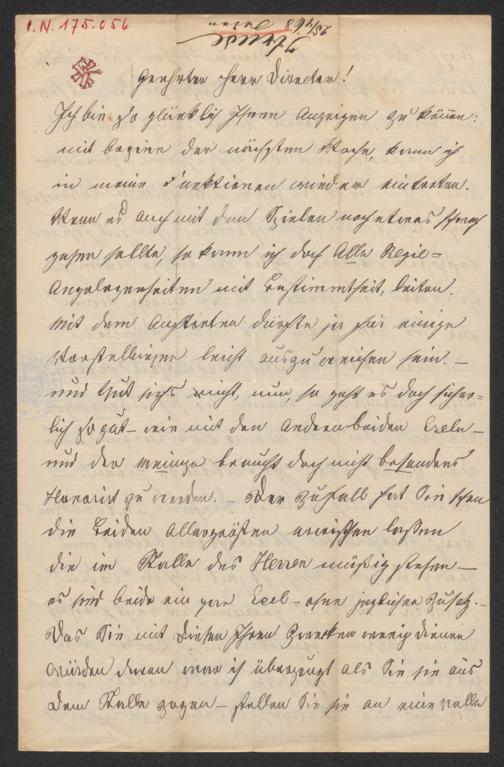 I.N. 175.056
Geehrter Herr Director!
Ich bin so glücklich Ihnen Anzeigen zu können:
mit beginn der nächsten Woche, kann ich
in meine Funktionen wieder eintreten.
Wenn es auch mit dem Spielen noch etwas schwach
gehen sollte, so kann ich doch Alle Regie=
Angelegenheiten mit Bestimmtheit, leiten.
Mit dem Auftreten dürfte ja für einige
Vorstellungen leicht auszuweichen sein. –
und thut sichs nicht, nun, so geht es doch sicher-
lich so gut – wie mit den Andern beiden Eseln –
und der meinige braucht doch nicht besonders
Honorirt zu werden. – Der Zufall hat Sie schon
die beiden Allergrößten erwischen lassen
die im Stalle des Herren müßig stehen –
es sind beide ein paar Esel – ohne jeglichen Zusatz. –
Das Sie mit diesen Ihren Zwecken wenig dienen
würden davon war ich überzeugt als Sie sie aus
dem Stalle zogen – stellen Sie sie an eine volle